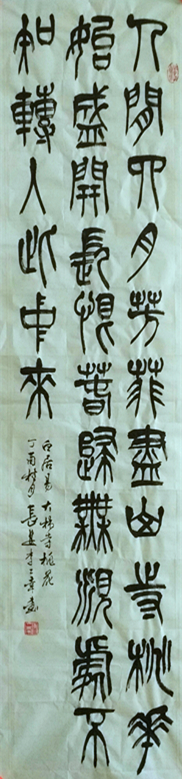 人間四月芳菲盡山寺桃華
始盛開長恨春歸無覓處不
知轉入此中來
白居易大林寺桃花
丁酉